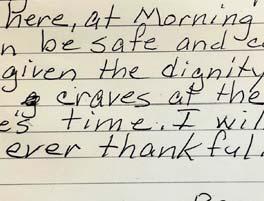 here, at Morning
n be safe and c
given the dignity
craves at the
e's time. I wil
ever thankful.